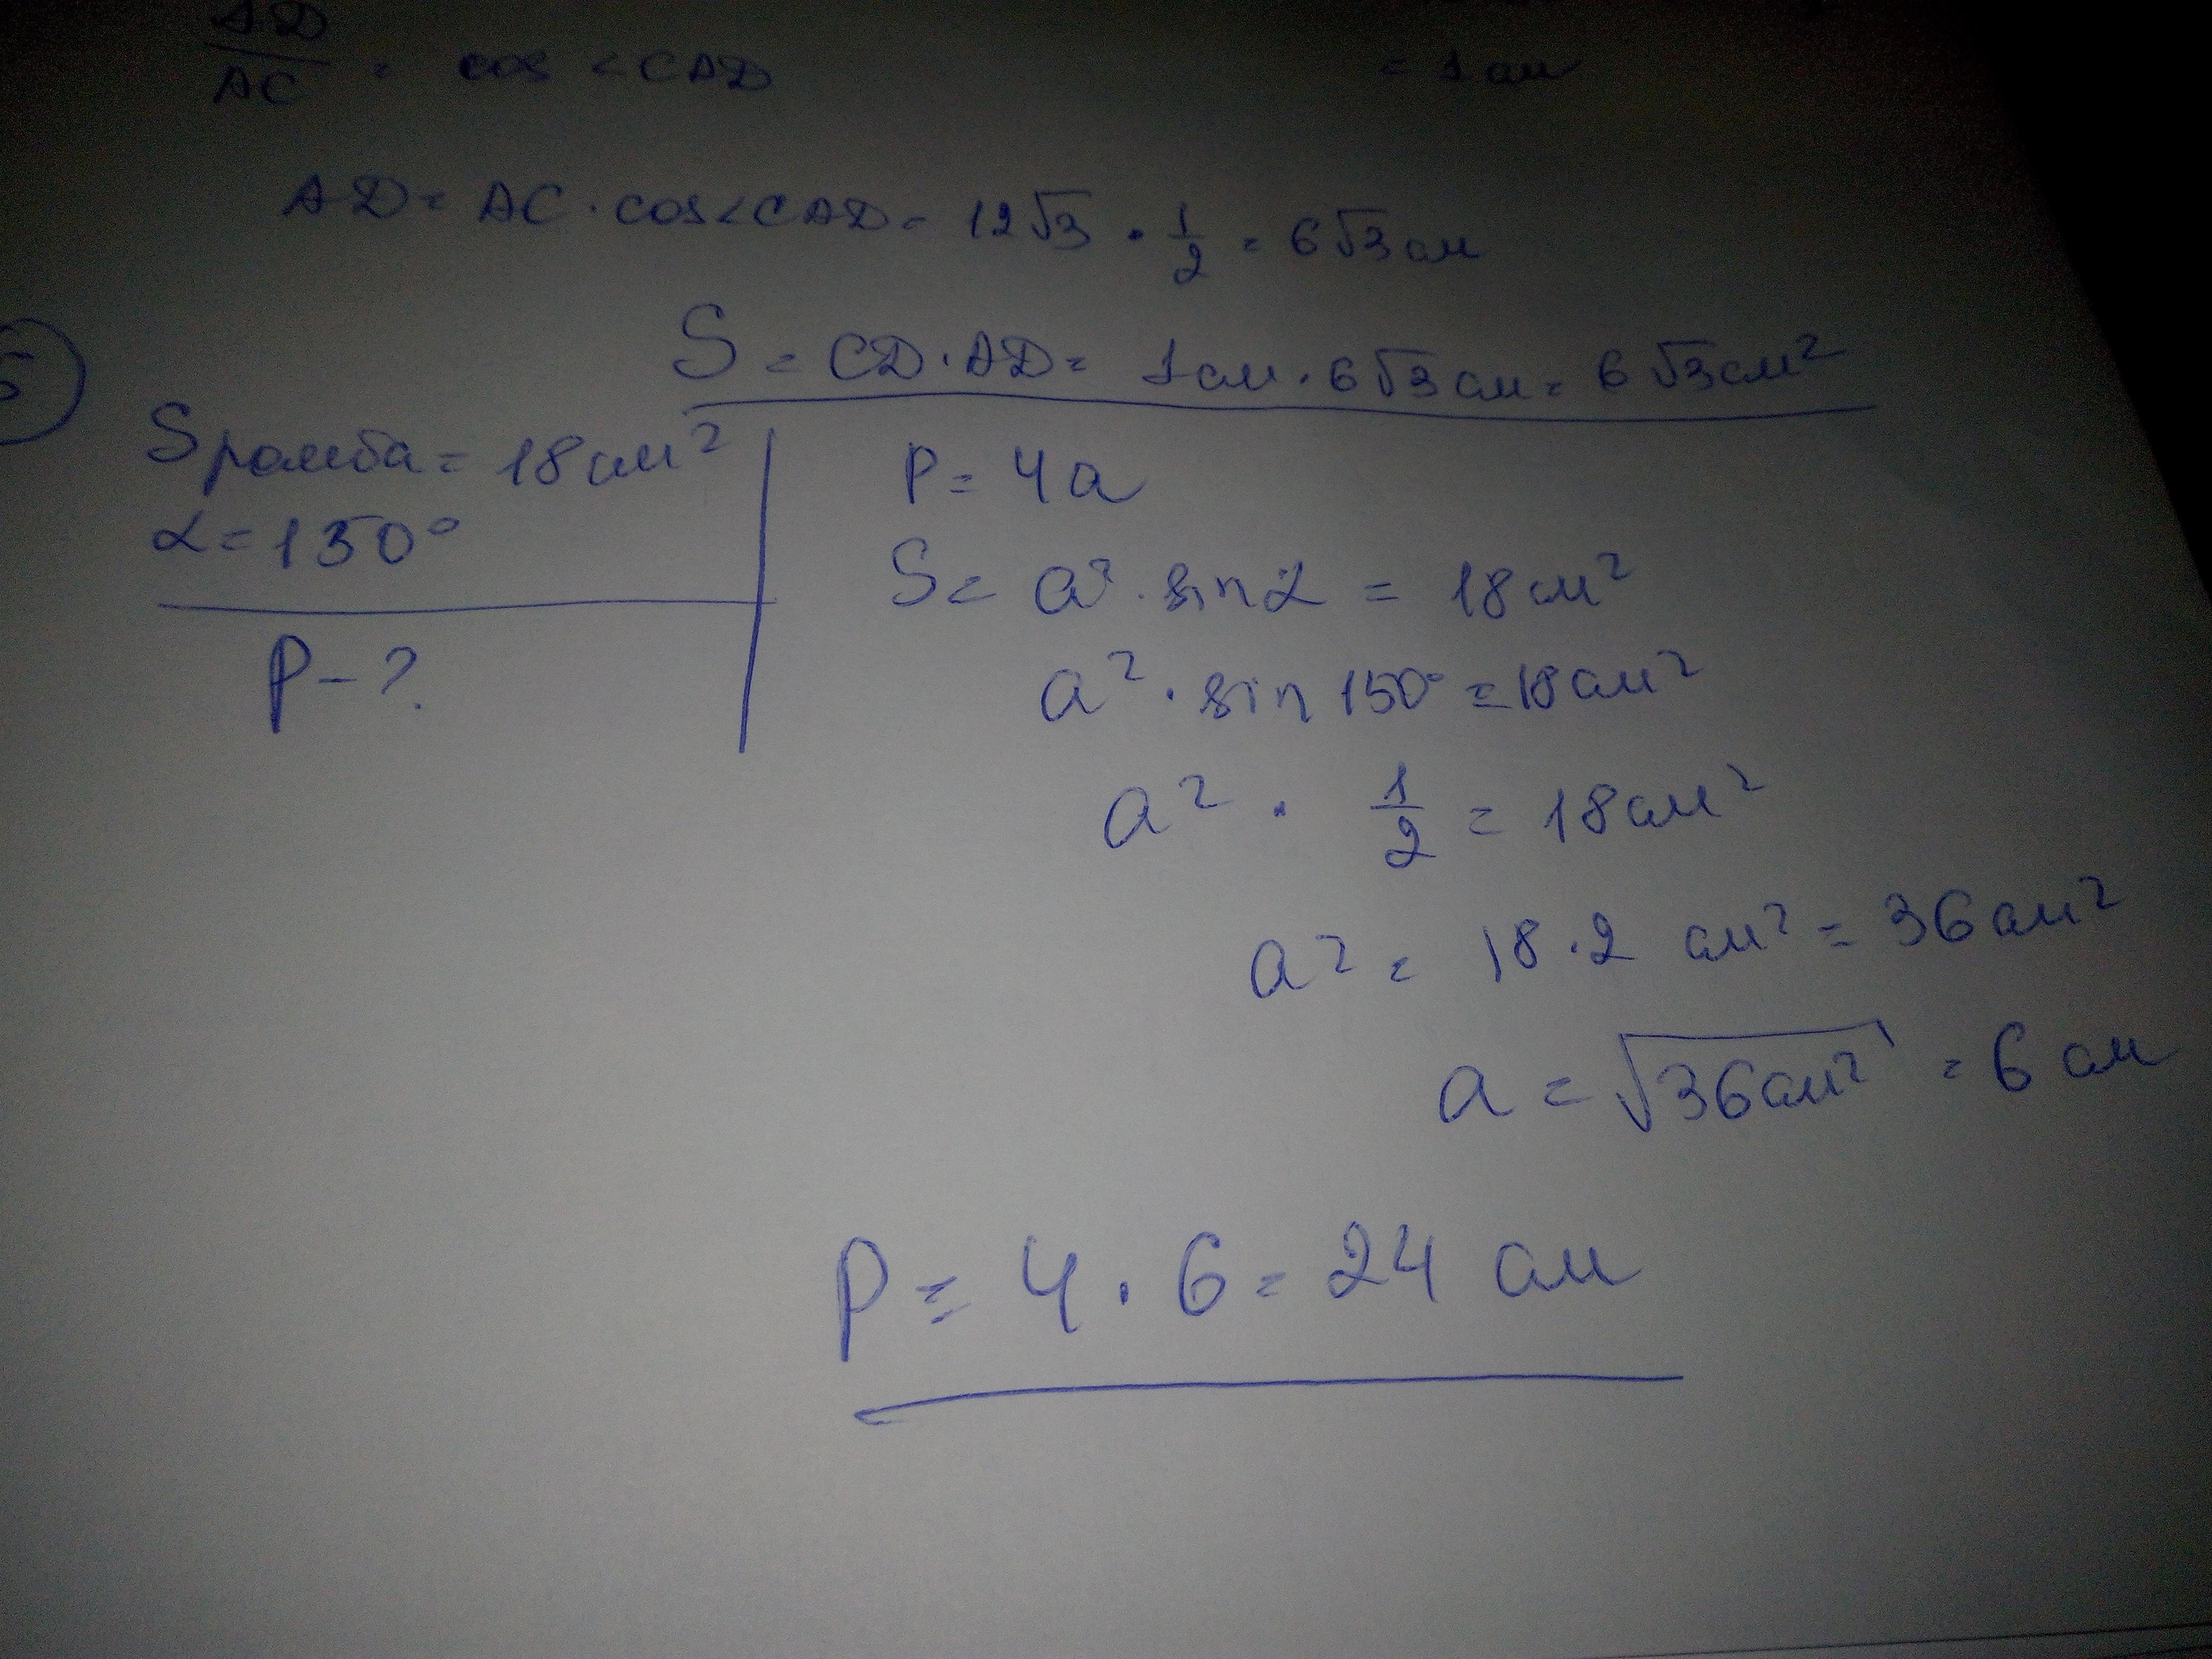 AD/AC = cos <CAD = 1 см
AD = AC · cos<CAD = 12√3 · 1/2 = 6√3 см
S = CD · AD = 1 см · 6√3 см = 6√3 см²
5
Sромба = 18 см²
α = 150°
P - ?
P = 4a
S = a² · sin α = 18 см²
a² · sin 150° = 18 см²
a² · 1/2 = 18 см²
a² = 18 · 2 см² = 36 см²
a = √36 см² = 6 см
P = 4 · 6 = 24 см